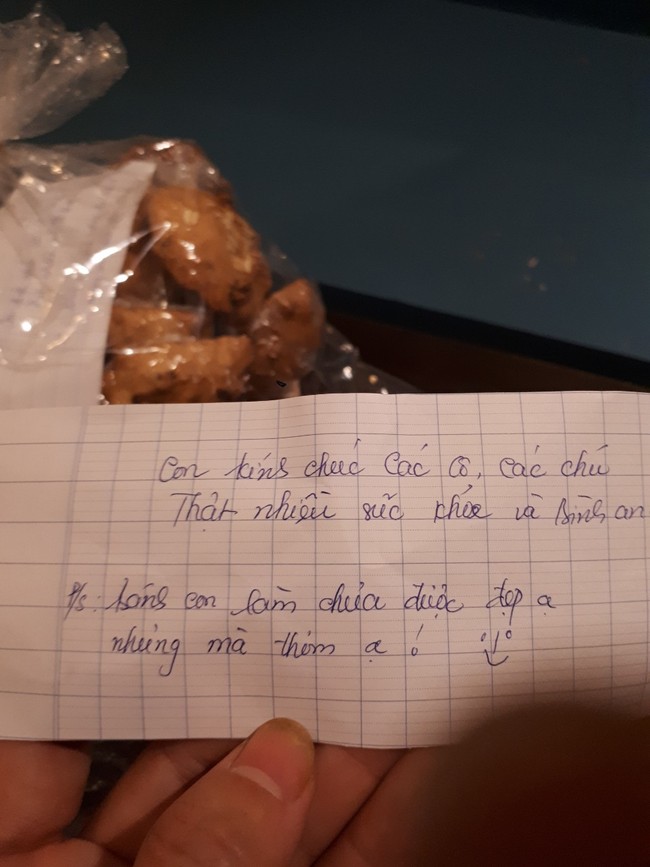 Con kính chúc các cô, các chú
Thật nhiều sức khỏe và bình an
P/s: bánh con làm chưa được đẹp ạ
nhưng mà thơm ạ!